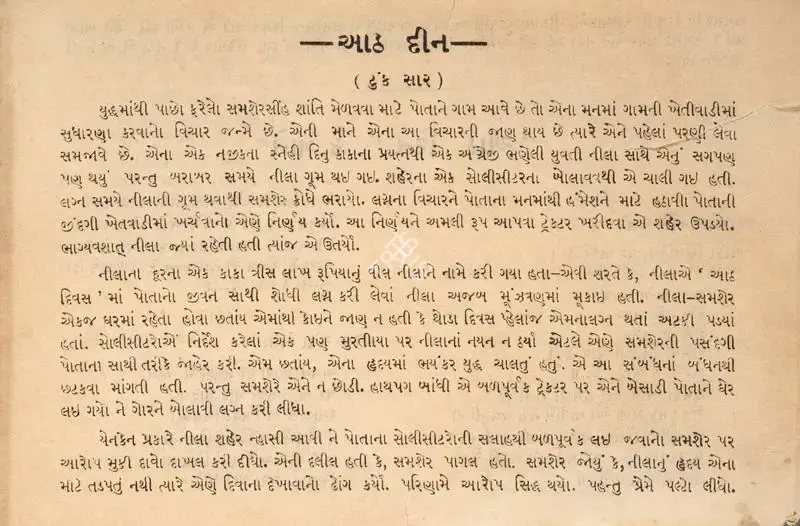 —આઠ દીન—
( ટુંક સાર )
યુદ્ધમાંથી પાછો ફરેલો સમશેરસીંહ શાંતિ મેળવવા માટે પોતાને ગામ આવે છે તો એના મનમાં ગામની ખેતીવાડીમાં
સુધારણા કરવાનો વિચાર જન્મે છે. એની માને એના આ વિચારની જાણ થાય છે ત્યારે એને પહેલાં પરણી લેવા
સમજાવે છે. એના એક નજીકના સ્નેહી દિનુ કાકાના પ્રયત્નથી એક અંગ્રેજી ભણેલી યુવતી નીલા સાથે એનું સગપણ
પણ થયું પરન્તુ બરાબર સમયે નીલા ગૂમ થઇ ગઇ. શહેરના એક સોલીસીટરના બોલાવવાથી એ ચાલી ગઇ હતી.
લગ્ન સમયે નીલાની ગૂમ થવાથી સમશેર ક્રોધે ભરાયો. લગ્નના વિચારને પોતાના મનમાંથી હંમેશને માટે હટાવી પોતાની
જીંદગી ખેતવાડીમાં ખર્ચવાનો એણે નિર્ણય કર્યો. આ નિર્ણયને અમલી રૂપ આપવા ટ્રેકટર ખરીદવા એ શહેર ઉપડયો.
ભાગ્યવશાત્ નીલા જ્યાં રહેતી હતી ત્યાંજ એ ઉતર્યો.
નીલાના દૂરના એક કાકા ત્રીસ લાખ રૂપિયાનું વીલ નીલાને નામે કરી ગયા હતા–એવી શરતે કે, નીલાએ ‘ આઠ
દિવસ ’માં પોતાનો જીવન સાથી શોધી લગ્ન કરી લેવાં નીલા અજબ મૂંઝવણમાં મૂકાઇ હતી. નીલા–સમશેર
એકજ ઘરમાં રહેતા હોવા છતાંય એમાંથી કોઇને જાણ ન હતી કે થોડા દિવસ પ્હેલાંજ એમનાલગ્ન થતાં અટકી પડયાં
હતાં. સોલીસીટરોએ નિર્દેશ કરેલાં એક પણ મુરતીયા પર નીલાનાં નયન ન ઠર્યાં એટલે એણે સમશેરની પસંદગી
પોતાના સાથી તરીકે જાહેર કરી. એમ છતાંય, એના હૃદયમાં ભયંકર યુદ્ધ ચાલતું હતું. એ આ સંબંધનાં બંધનથી
છટકવા માંગતી હતી. પરન્તુ સમશેરે એને ન છોડી. હાથપગ બાંધી એ બળપૂર્વક ટ્રેકટર પર એને બેસાડી પોતાને ઘેર
લઇ ગયો ને ગોરને બોલાવી લગ્ન કરી લીધા.
યેનકેન પ્રકારે નીલા શહેર ન્હાસી આવી ને પોતાના સોલીસીટરોની સલાહથી બળપૂર્વક લઇ જવાનો સમશેર પર
આરોપ મુકી દાવો દાખલ કરી દીધો. એની દલીલ હતી કે, સમશેર પાગલ હતો. સમશેર જોયું કે, નીલાનું હૃદય એના
માટે તડપતું નથી ત્યારે એણે દિવાના દેખાવાનો ઢોંગ કર્યો. પરિણામે આરોપ સિદ્ધ થયો. પહન્તુ પ્રેમે પલ્ટો લીધો.